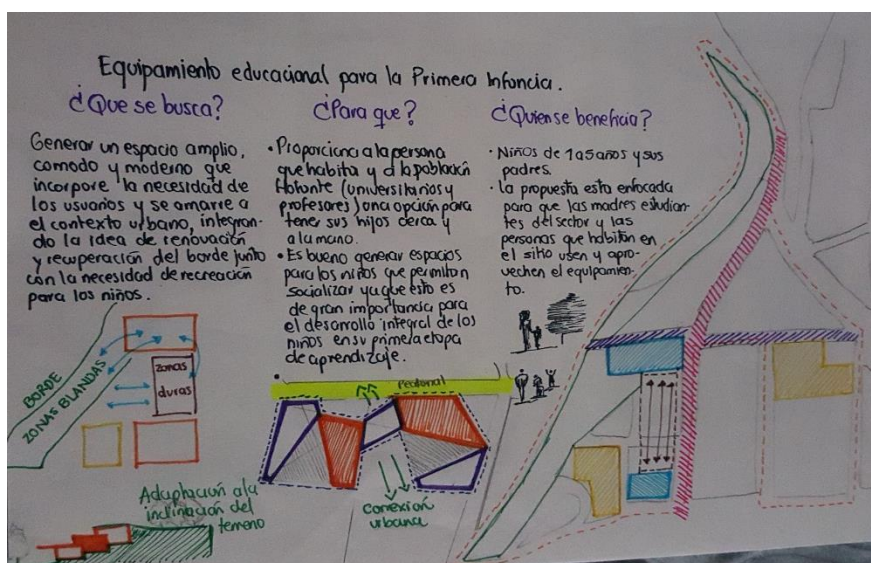 Equipamiento educacional para la Primera Infancia.
¿Que se busca?
Generar un espacio amplio,
comodo y moderno que
incorpore la necesidad de
los usuarios y se amarre a
el contexto urbano, integran-
do la idea de renovación
y recuperación del borde junto
con la necesidad de recreación
para los niños.
¿Para que?
• Proporciona a la persona
que habita y a la población
flotante (universitarios y
profesores) una opción para
tener sus hijos cerca y
a la mano.
• Es bueno generar espacios
para los niños que permitan
socializar ya que esto es
de gran importancia para
el desarrollo integral de los
niños en su primera etapa
de aprendizaje.
¿Quien se beneficia?
• Niños de 1 a 5 años y sus
padres.
• La propuesta esta enfocada
para que las madres estudian-
tes del sector y las
personas que habitan en
el sitio usen y apro-
vechen el equipamien-
to.
BORDE
ZONAS BLANDAS
zonas
duras
Peatonal
conexión
urbana
Adaptación a la
inclinación del
terreno